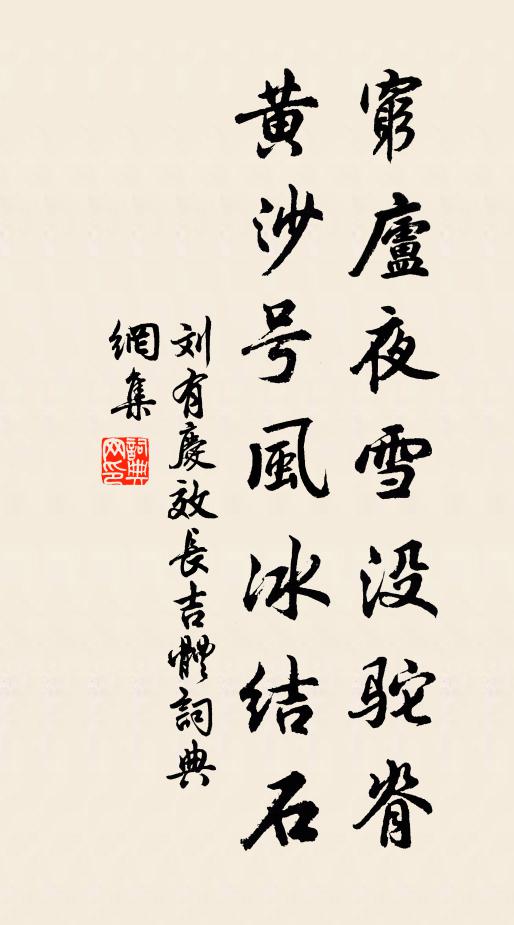 窮廬夜雪没駝脊
黄沙号風冰结石
刘有慶效長吉體詞典
網集
詞典網印